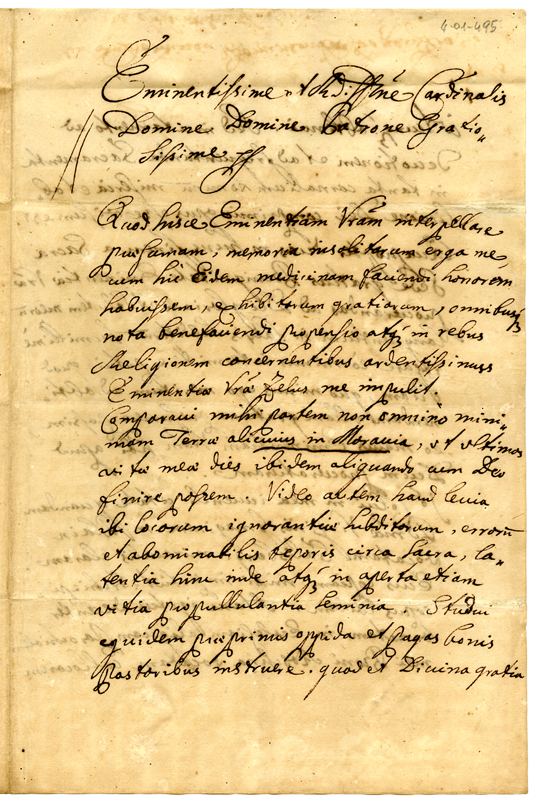 4-01-495
Eminentissime ac Rdissime Cardinalis
Domine Domine Patrone Gratio„
sissime
Quod hisce Eminentiam Vram interpellare
præsumam, memoria insolitarum erga me,
cum hic Eidem medicinam faciendi honorem
habuissem, exhibitarum gratiarum, omnibusq;
nota benefaciendi propensio atq; in rebus
Religionem concernentibus ardentissimus
Eminentiæ Vræ Zelus me impulit.
Comparavi mihi partem non omnino mini„
mam Terræ alicuius in Moravia, ut ultimos
vitæ meæ dies ibidem aliquando cum Deo
finire possem. Video autem haud levia
ibi locorum ignorantiæ subditorum, errorũ
et abominabilis teporis circa Sacra, la„
tentia hinc inde atq; in aperta etiam
vitia propullulantia semina. Studui
equidem præprimis oppida et pagos bonis
Pastoribus instruere. quod et Divina gratia